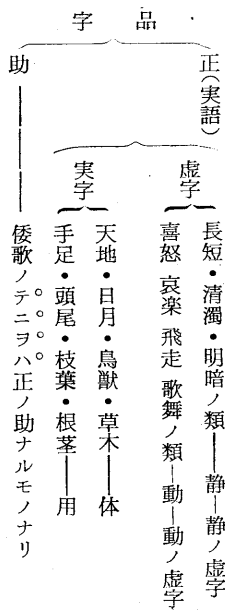 字品
正（実語）
虚字
長短・清濁・明暗ノ類――静―静ノ虚字
喜怒 哀楽 飛走 歌舞ノ類―動―動ノ虚字
実字
天地・日月・鳥獣・草木――体
手足・頭尾・枝葉・根茎――用
助――――倭歌ノテニヲハ正ノ助ナルモノナリ